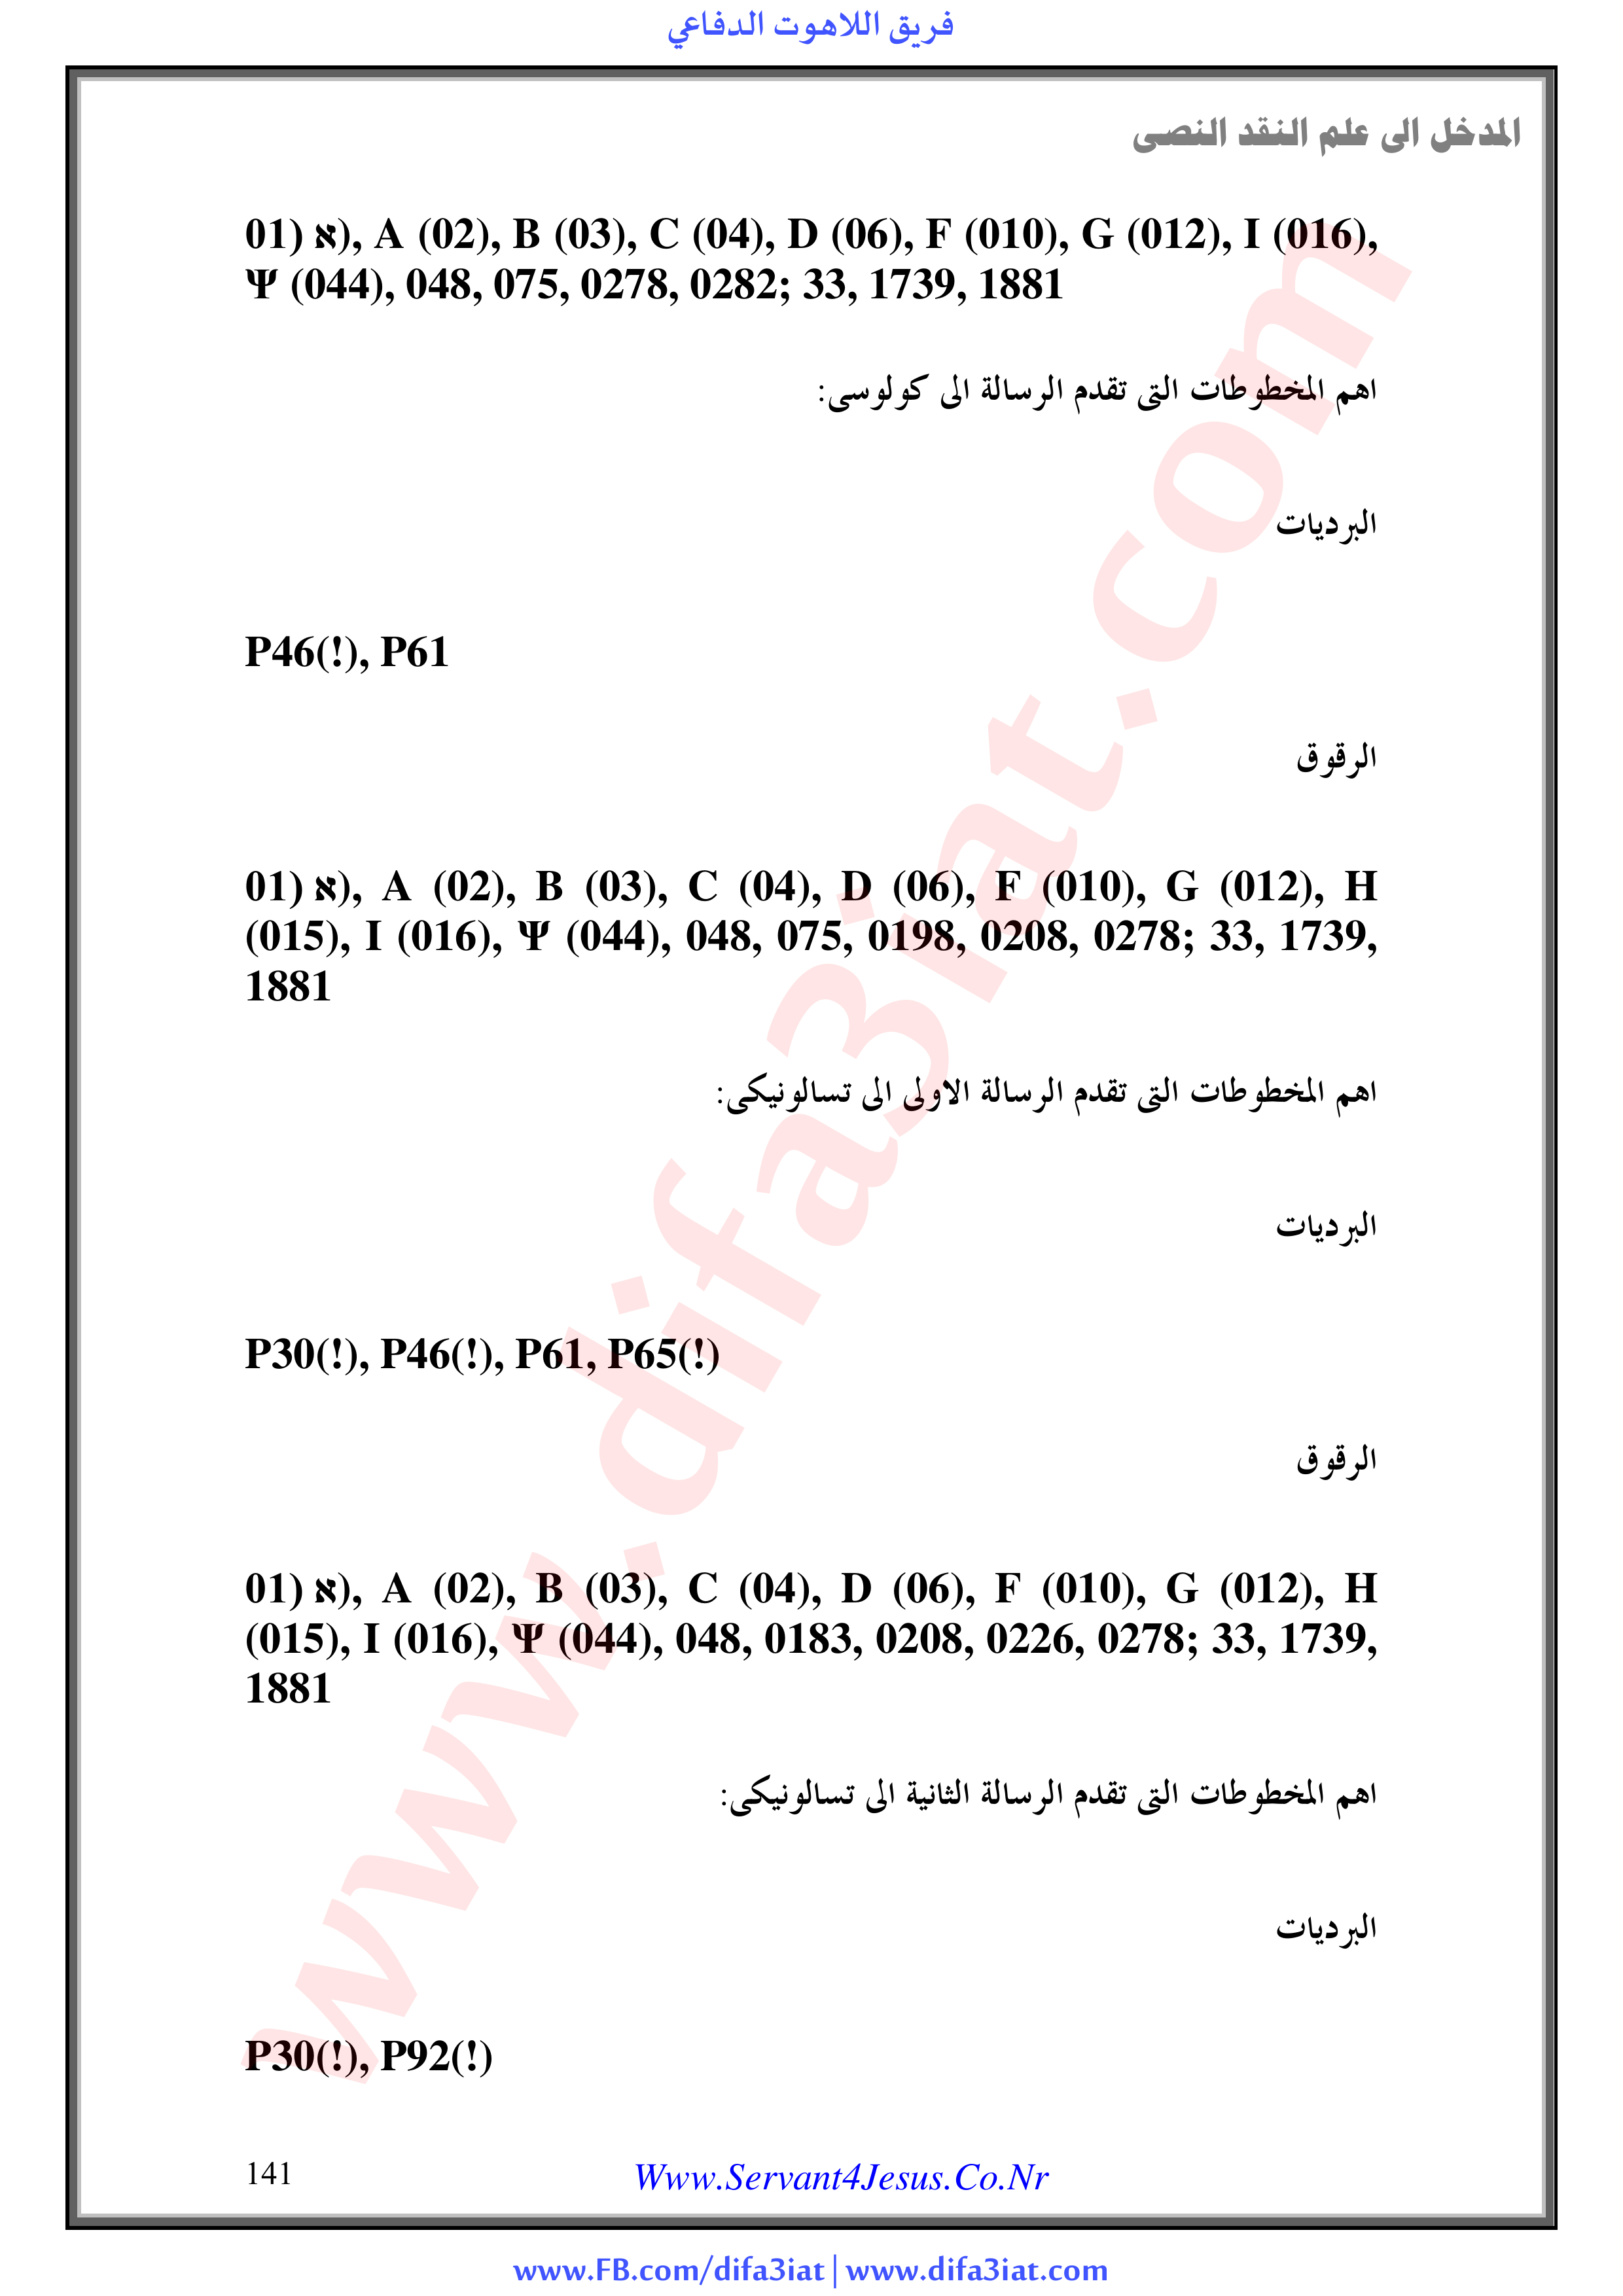 فريق اللاهوت الدفاعي
المدخل الى علم النقد النصى
01) א), A (02), B (03), C (04), D (06), F (010), G (012), I (016),
Ψ (044), 048, 075, 0278, 0282; 33, 1739, 1881
اهم المخطوطات التى تقدم الرسالة الى كولوسى:
البرديات
P46(!), P61
الرقوق
01) א), A (02), B (03), C (04), D (06), F (010), G (012), H
(015), I (016), Ψ (044), 048, 075, 0198, 0208, 0278; 33, 1739,
1881
اهم المخطوطات التى تقدم الرسالة الاولى الى تسالونيكى:
البرديات
P30(!), P46(!), P61, P65(!)
الرقوق
01) א), A (02), B (03), C (04), D (06), F (010), G (012), H
(015), I (016), Ψ (044), 048, 0183, 0208, 0226, 0278; 33, 1739,
1881
اهم المخطوطات التى تقدم الرسالة الثانية الى تسالونيكى:
البرديات
P30(!), P92(!)
141
Www.Servant4Jesus.Co.Nr
www.FB.com/difa3iat | www.difa3iat.com
www.difa3iat.com